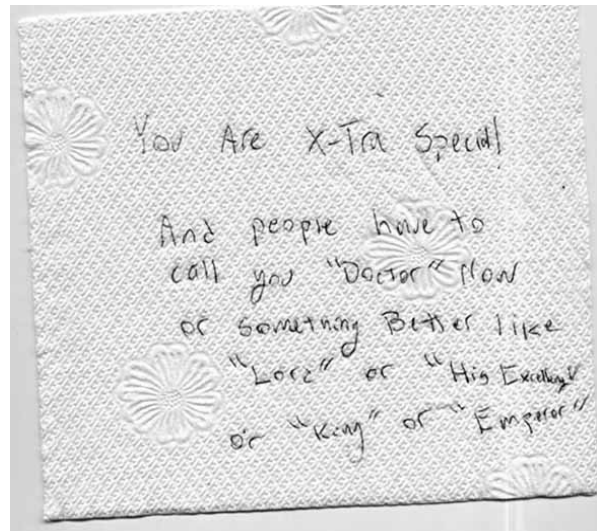 You Are X-Tra Special!
And people have to
call you "Doctor" Now
or something Better like
"Lord" or "His Excellency"
or "King" or "Emperor"